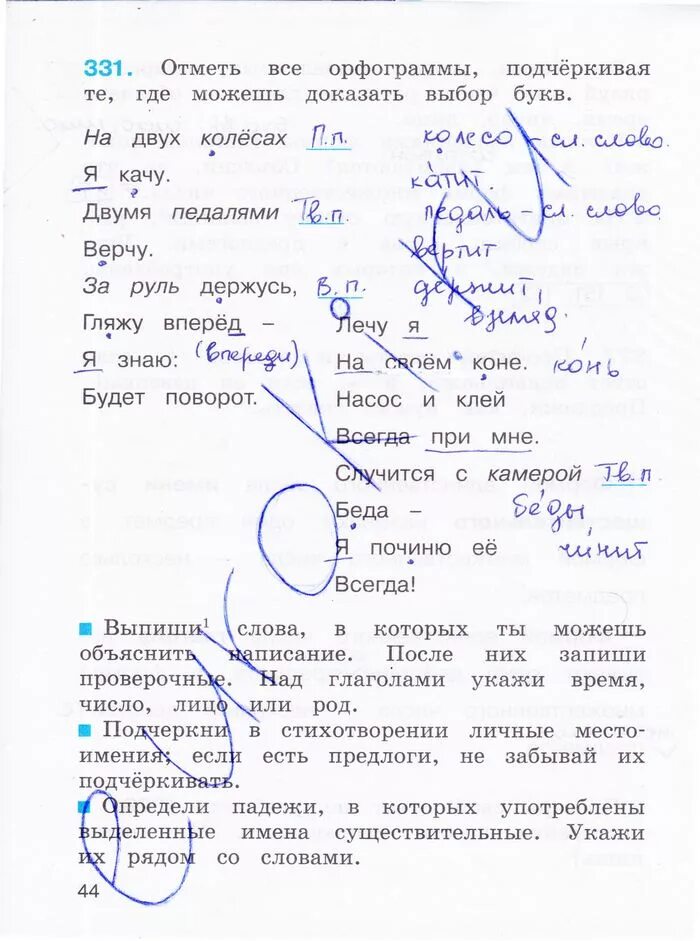 331. Отметь все орфограммы, подчёркивая
те, где можешь доказать выбор букв.
На двух колёсах П.п. колесо – сл. слово.
Я качу. катит
Двумя педалями Тв.п. педаль – сл. слово.
Верчу. вертит
За руль держусь, В.п. держит,
Гляжу вперёд – Лечу я
Я знаю: (впереди) На своём коне. конь
Будет поворот. Насос и клей
Всегда при мне.
Случится с камерой Тв.п.
Беда – беды
Я починю её чинит
Всегда!
Выпиши¹ слова, в которых ты можешь
объяснить написание. После них запиши
проверочные. Над глаголами укажи время,
число, лицо или род.
Подчеркни в стихотворении личные место-
имения; если есть предлоги, не забывай их
подчёркивать.
Определи падежи, в которых употреблены
выделенные имена существительные. Укажи
их рядом со словами.
44